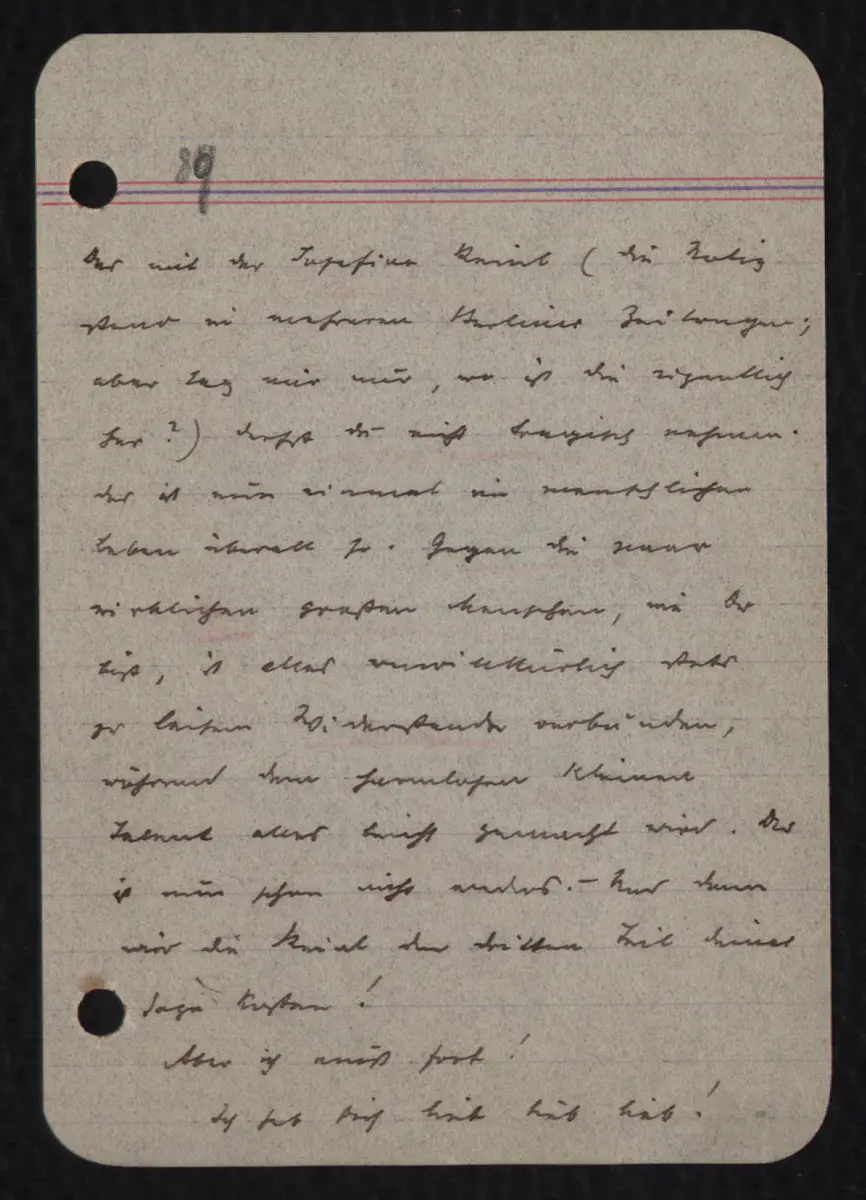 89
Das mit der Josefine Kneisl (die Notiz
stand in mehreren Berliner Zeitungen;
aber sag mir nur, wo ist die eigentlich
her?) darfst du nicht tragisch nehmen.
das ist nun einmal im menschlichen
Leben überall so. Gegen die paar
wirklichen großen Menschen, wie Du
bist, ist alles unwillkürlich stets
zu leisem Widerstande verbunden,
während dem harmlosen kleinen
Talent alles leicht gemacht wird. Das
ist nun schon nicht anders. – Und dann
wird die den dritten Teil deiner
Gage kosten!
Aber ich muß fort!
Ich hab Dich lieb lieb lieb!